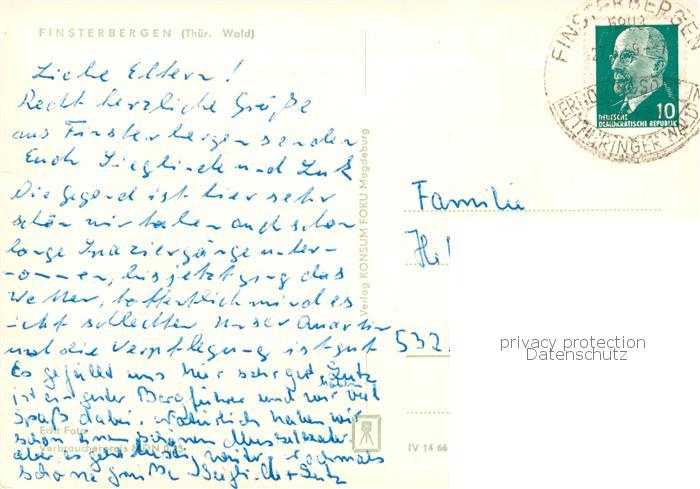 FINSTERBERGEN (Thür. Wald)
Liebe Eltern!
Recht herzliche Grüße
aus Finsterbergen senden
Euch Sieglinde und Lutz
Die Gegend ist hier sehr
schön wir haben auch schon
lange Spaziergänge unter-
nommen, bis jetzt ging das
Wetter, hoffentlich wird es
nicht schlechter. Unser Quartier
und die Verpflegung ist gut
Es gefällt uns hier sehr gut Lutz
ist ein guter Bergführer und wir haben viel
Spaß dabei. Natürlich haben wir
schon einen schönen Muskelkater
aber es geht weiter. Nochmals
schöne Grüße Sieglinde + Lutz
Edit Foto
Verbraucherpreis MDN
Verlag KONSUM FOKU Magdeburg
IV 14 66
FINSTERBERGEN
5803
THÜRINGER WALD
10
DEUTSCHE
DEMOKRATISCHE REPUBLIK
Familie
532
privacy protection
Datenschutz